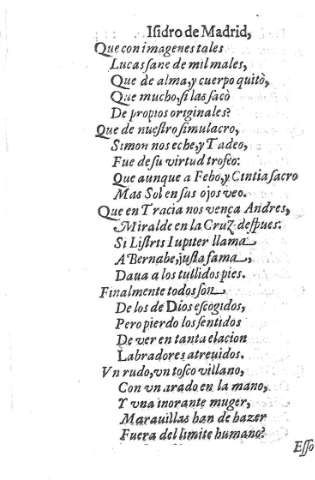 Isidro de Madrid,
Que con imagenes tales
Lucas sane de mil males,
Que de alma, y cuerpo quitò,
Que mucho, si las sacò
De propios originales?
Que de nuestro simulacro,
Simon nos eche, y Tadeo,
Fue de su virtud trofeo:
Que aunque a Febo, y Cintia sacro
Mas Sol en sus ojos veo.
Que en Tracia nos vença Andres,
Miralde en la Cruz despues.
Si Listris Iupiter llama
A Bernabe, justa fama,
Daua a los tullidos pies.
Finalmente todos son
De los de Dios escogidos,
Pero pierdo los sentidos
De ver en tanta elacion
Labradores atreuidos.
Vn rudo, vn tosco villano,
Con vn arado en la mano,
Y vna inorante muger,
Marauillas han de hazer
Fuera del limite humano?
Esso